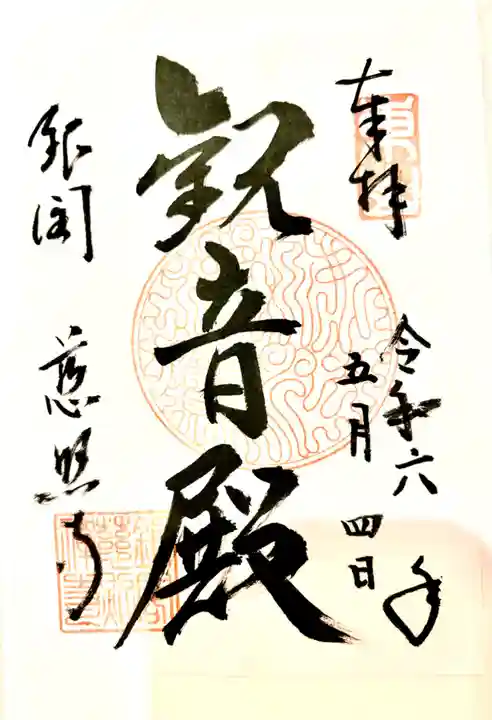 奉拝
令和六年
五月四日
観音殿
銀閣 慈照寺